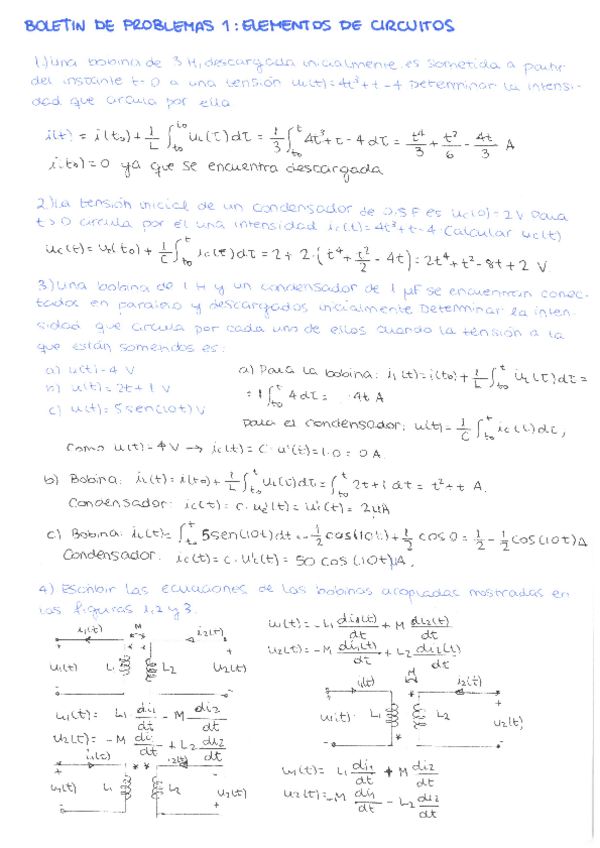 BOLETIN DE PROBLEMAS 1: ELEMENTOS DE CIRCUITOS
1.) Una bobina de 3 H, descargada inicialmente es sometida a partir
del instante t=0 a una tensión u(t)=4t³+t-4 Determinar la intensi-
dad que circula por ella.
i(t) = i(t₀) + 1/L ∫ u(τ)dτ = 1/3 ∫ 4t³+t-4 dτ = t⁴/3 + t²/6 - 4t/3 A
i(t₀)=0 ya que se encuentra descargada
2.) La tensión inicial de un condensador de 0.5F es uc(0)=2V para
t>0 circula por él una intensidad ic(t)=4t³+t-4. Calcular uc(t)
uc(t)=u(t₀)+ 1/C ∫ ic(τ)dτ = 2+2·(t⁴+t²/2-4t)=2t⁴+t²-8t+2 V
3.) Una bobina de 1 H y un condensador de 1 µF se encuentran conec-
tados en paralelo y descargados inicialmente Determinar la inten-
sidad que circula por cada uno de ellos cuando la tensión a la
que están sometidos es:
a) u(t)=4 V
b) u(t)=2t+1 V
c) u(t)=5sen(10t)V
a) Para la bobina: i(t)=i(t₀)+ 1/L ∫ u(τ)dτ =
= 1 ∫ 4dτ = 4t A
para el condensador: u(t)= 1/C ∫ ic(τ)dτ,
como u(t)=4V → ic(t)=C·u'(t)=1·0=0A.
b) Bobina: i(t)=i(t₀)+ 1/L ∫ u(τ)dτ = ∫ 2t+1 dt = t²+t A.
Condensador: ic(t)=c·u'(t)=u'(t)=2µA
c) Bobina: i(t)= ∫ 5sen(10t)dt = -1/2 cos(10t)+1/2 cos0 = 1/2 - 1/2 cos(10t)A
Condensador: ic(t)=c·u'(t)=50 cos(10t)µA.
4) Escribir las ecuaciones de las bobinas acopladas mostradas en
las figuras 1, 2 y 3.
i₁(t) M i₂(t)
u₁(t) L₁ L₂ u₂(t)
u₁(t)= -L₁ di₁(t)/dt + M di₂(t)/dt
u₂(t)= -M di₁(t)/dt + L₂ di₂(t)/dt
u₁(t)= L₁ di₁/dt - M di₂/dt
u₂(t)= -M di₁/dt + L₂ di₂/dt
M
i₁(t) i₂(t)
u₁(t) L₁ L₂ u₂(t)
i₁(t) i₂(t)
u₁(t) L₁ L₂ u₂(t)
u₁(t)= L₁ di₁/dt + M di₂/dt
u₂(t)= -M di₁/dt - L₂ di₂/dt